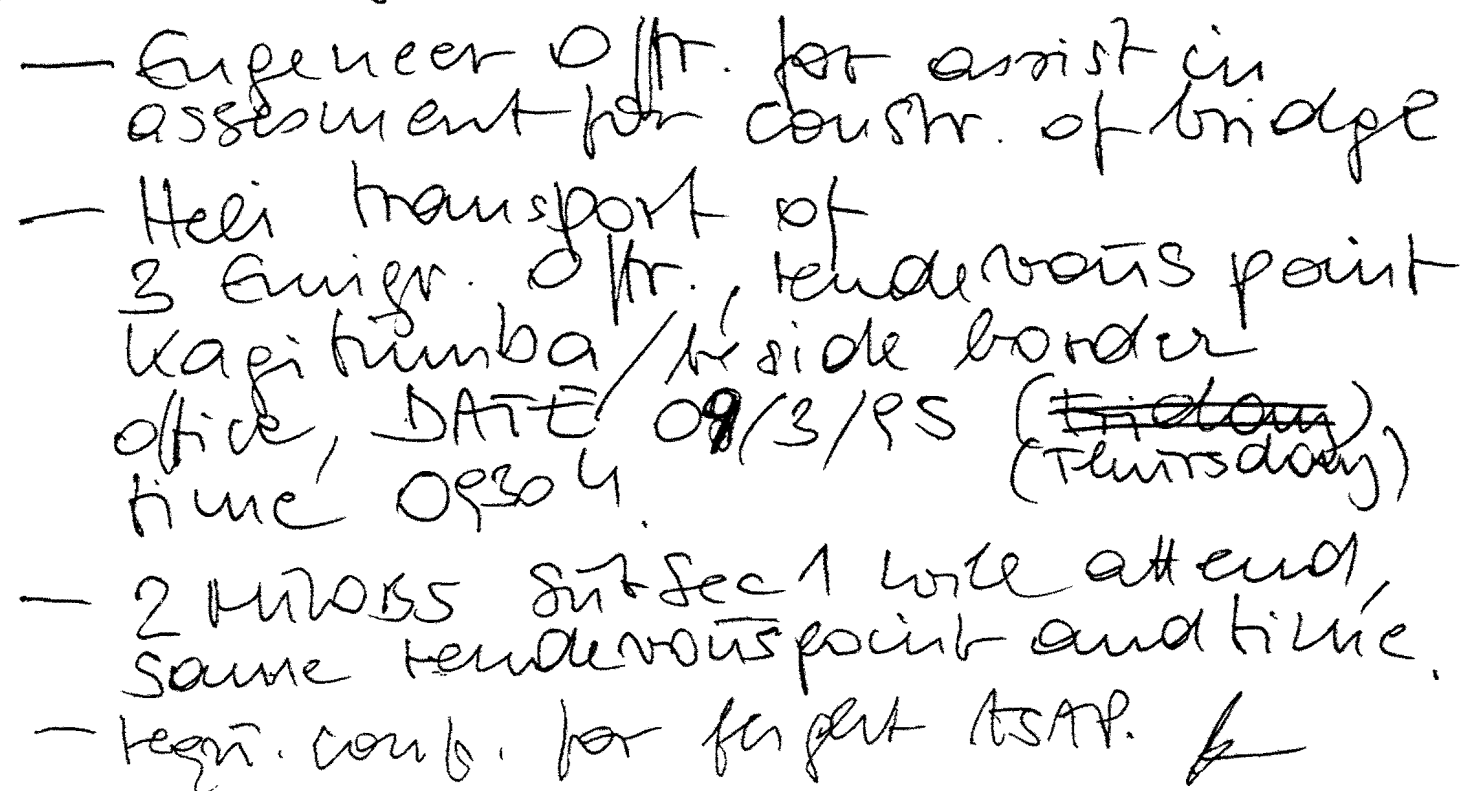 — Engeneer Offr. for assist in
assesment for constr. of bridge
— Heli transport of
3 Emigr. Offr., rendevous point
Kagitumba/beside border
office, DATE 09/3/95 (Friday)
(Thursday)
time 0930 H.
— 2 MILOBS Sut Sec 1 will attend,
same rendevous point and time.
— requ. conf. for flight ASAP.